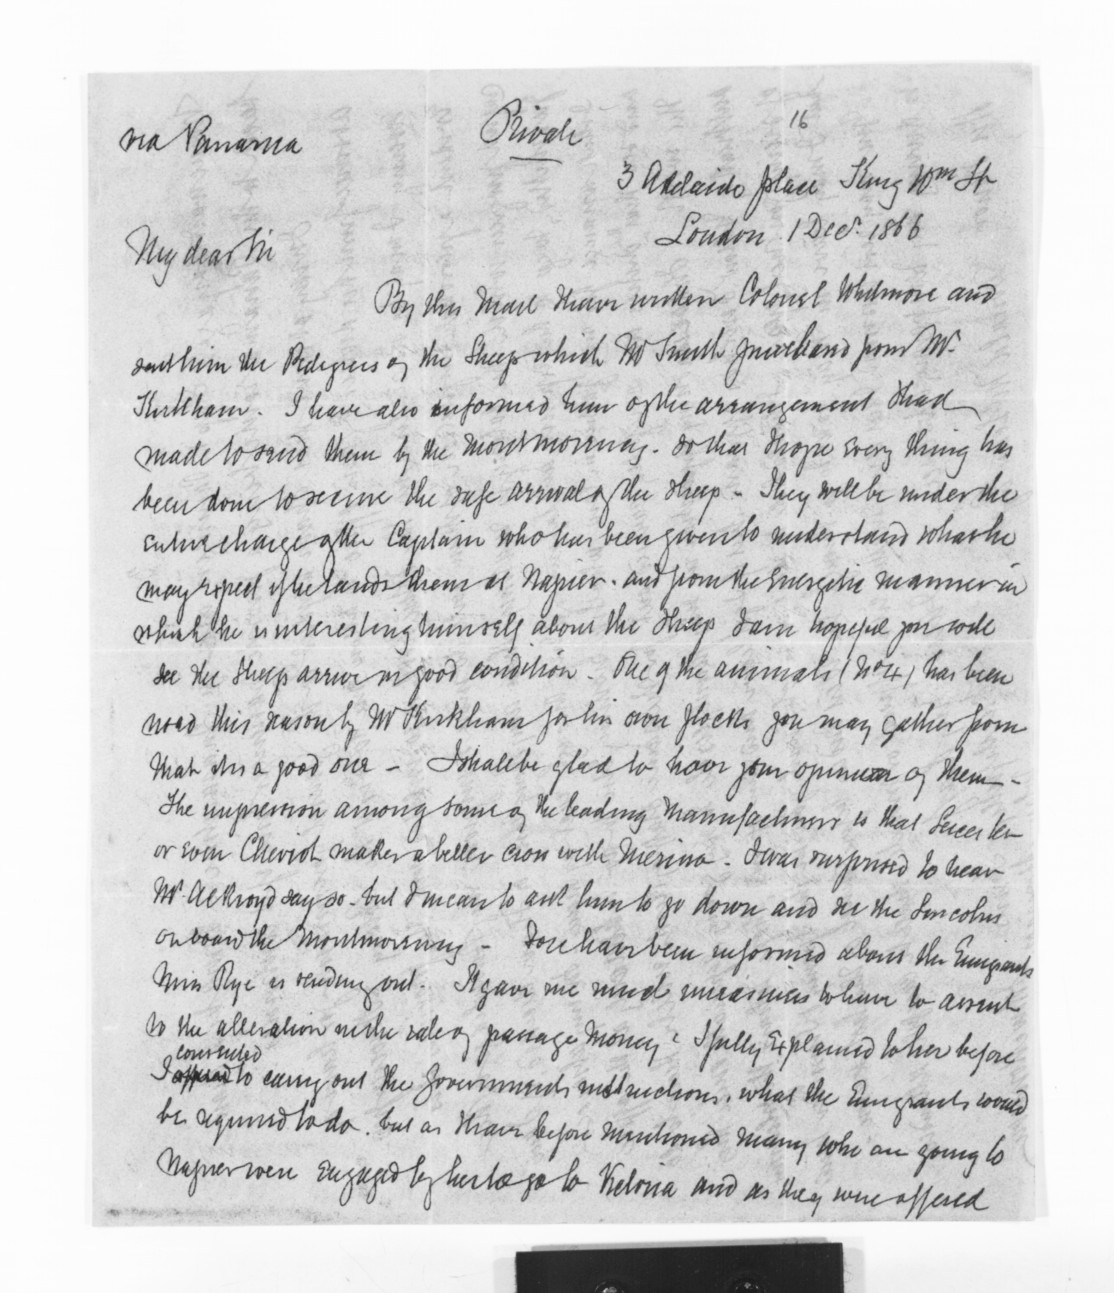 16
via Panama
Private
3 Adelaide place King Wm St
London 1 Decr. 1866
My dear Sir
By this Mail I have written Colonel Whitmore and
sent him the Pedigrees of the Sheep which Mr Smith purchased from Mr.
Kirkham. I have also informed him of the arrangement I had
made to send them by the Montmorency. so that I hope every thing has
been done to secure the safe arrival of the sheep - They will be under the
entire charge of the Captain who has been given to understand what he
may expect if he lands them at Napier. and from the Energetic manner in
which he is interesting himself about the Sheep I am hopeful you will
see the Sheep arrive in good condition. One of the animals (No 4) has been
used this season by Mr Kirkham for his own flocks you may gather from
that it is a good one - I shall be glad to have your opinion of them -
The impression among some of the leading Manufacturers is that Leicester
or even Cheviot makes a better cross with Merino - I was surprised to hear
Mr. Ackroyd say so - but I mean to ask him to go down and see the Lincolns
on board the Montmorency - You have been informed about the Emigrants
Miss Rye is sending out. It gave me much uneasiness to have to assent
to the alteration in the rate of passage Money. I fully Explained to her before
consented
I agreed to carry out the Governments instructions. what the Emigrants would
be required to do. but as I have before mentioned many who are going to
Napier were Engaged by her to go to Victoria and as they were offered